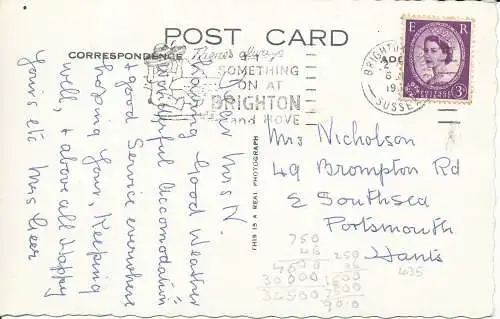 POST CARD
CORRESPONDENCE
There's always
SOMETHING
ON AT
BRIGHTON
and HOVE
E R
POSTAGE
3D
BRIGHTON
SUSSEX
Dear Mrs N.
Having Good Weather
Wonderful Accomodation
+ good Service everywhere
hoping Your, Keeping
well, + above all Happy
Yours etc Mrs Geer
THIS IS A REAL PHOTOGRAPH
Mrs Nicholson
49 Brompton Rd
E Southsea
Portsmouth
Hants
435
750
46
4500
30000
34500
250
36